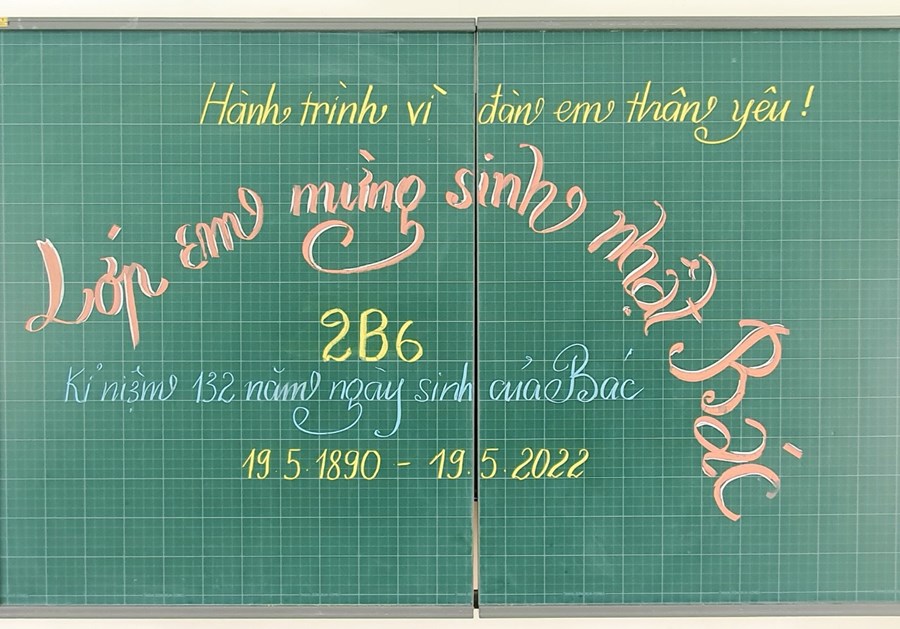 Hành trình vì đàn em thân yêu!
Lớp em mừng sinh nhật Bác
2B6
Kỉ niệm 132 năm ngày sinh của Bác
19.5.1890 - 19.5.2022